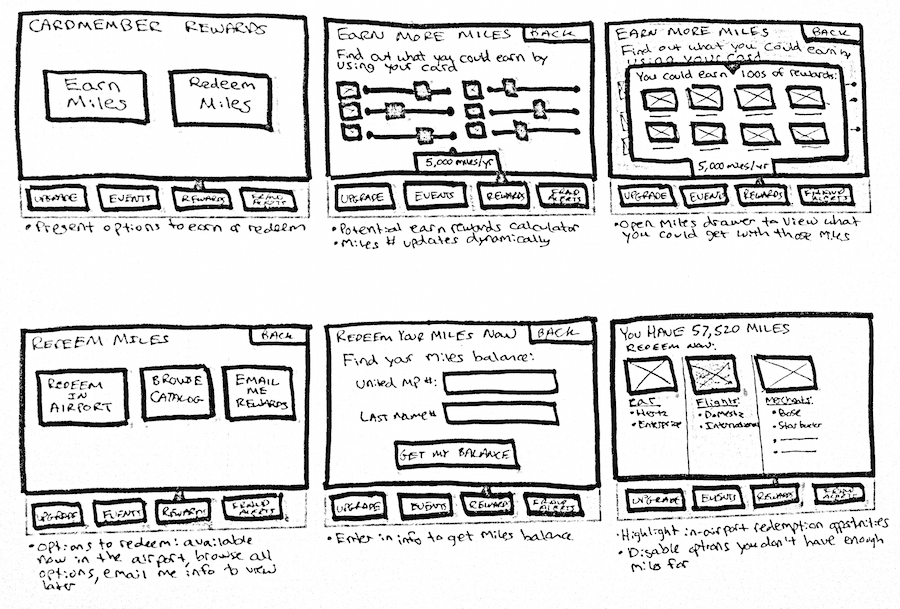 CARDMEMBER REWARDS
Earn Miles
Redeem Miles
UPGRADE EVENTS REWARDS FRAUD ALERTS
• Present options to earn or redeem
EARN MORE MILES BACK
Find out what you could earn by
using your card
5,000 miles/yr
UPGRADE EVENTS REWARDS FRAUD ALERTS
• Potential earn rewards calculator
• Miles # updates dynamically
EARN MORE MILES BACK
Find out what you could earn by
using your card
You could earn 100s of rewards:
5,000 miles/yr
UPGRADE EVENTS REWARDS ALERTS
• Open Miles drawer to view what
you could get with those miles
REDEEM MILES BACK
REDEEM IN AIRPORT
BROWSE CATALOG
EMAIL ME REWARDS
UPGRADE EVENTS REWARDS FRAUD ALERTS
• Options to redeem: available
now in the airport, browse all
options, email me info to view
later
REDEEM YOUR MILES NOW BACK
Find your miles balance:
United MP #:
LAST NAME #
GET MY BALANCE
UPGRADE EVENTS REWARDS FRAUD ALERTS
• Enter in info to get miles balance
YOU HAVE 57,520 MILES
REDEEM NOW:
Car Flights Merchants
• Hertz • Domestic • Bose
• Enterprise • International • Starbucks
UPGRADE EVENTS REWARDS FRAUD ALERTS
• Highlight in-airport redemption
• Disable options you don't have enough
miles for